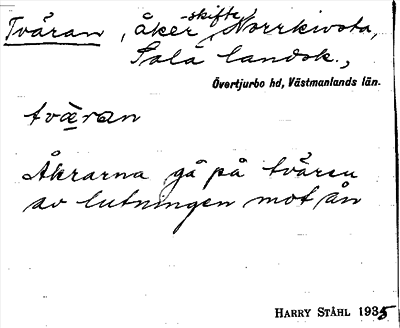 Tväran, åker-skifte, Norrkivsta,
Sala landsk.,
Övertjurbo hd, Västmanlands län.
tvä̀ran
Åkrarna gå på tväran
av lutningen mot ån
HARRY STÅHL 1935